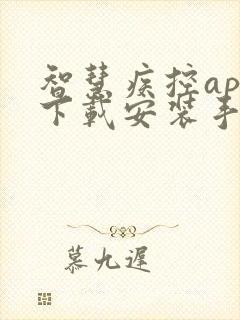 智慧疾控ap
下载安装手
慕九遲